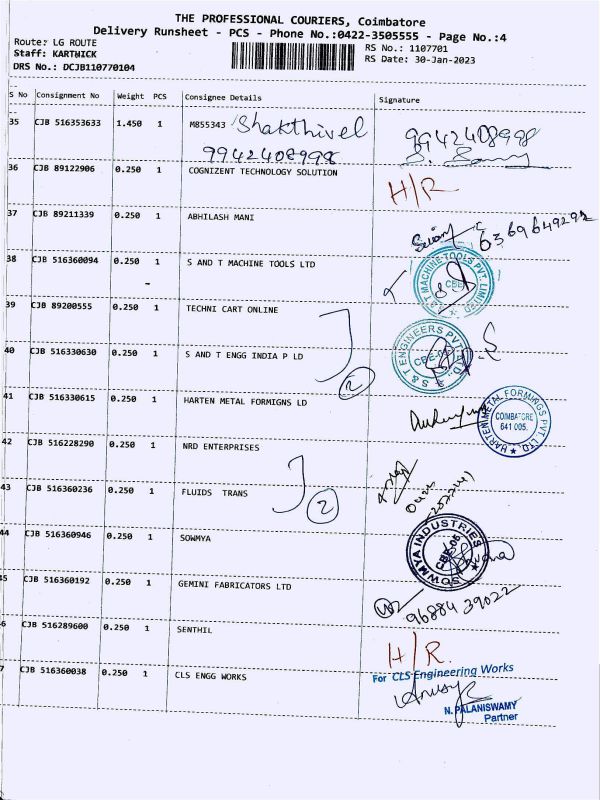 THE PROFESSIONAL COURIERS, Coimbatore
Delivery Runsheet - PCS - Phone No.:0422-3505555 - Page No.:4
Route: LG ROUTE
Staff: KARTHICK
DRS No.: DCJB110770104
RS No.: 1107701
RS Date: 30-Jan-2023
S No Consignment No Weight PCS Consignee Details Signature
35 CJB 516353633 1.450 1 M855343 Shakthivel 9942408998
9942408998
36 CJB 89122906 0.250 1 COGNIZENT TECHNOLOGY SOLUTION H/R
37 CJB 89211339 0.250 1 ABHILASH MANI 6369649292
38 CJB 516360094 0.250 1 S AND T MACHINE TOOLS LTD
S & T MACHINE TOOLS PVT. LIMITED CBE
39 CJB 89200555 0.250 1 TECHNI CART ONLINE
40 CJB 516330630 0.250 1 S AND T ENGG INDIA P LD
S & T ENGINEERS PVT. LTD.
2
41 CJB 516330615 0.250 1 HARTEN METAL FORMIGNS LD
HARTEN METAL FORMINGS PVT LTD. COIMBATORE 641 005.
42 CJB 516228290 0.250 1 NRD ENTERPRISES
43 CJB 516360236 0.250 1 FLUIDS TRANS
2
44 CJB 516360946 0.250 1 SOWMYA
SOWMYA INDUSTRIES CBE-05
45 CJB 516360192 0.250 1 GEMINI FABRICATORS LTD 96884 39022
6 CJB 516289600 0.250 1 SENTHIL H/R.
7 CJB 516360038 0.250 1 CLS ENGG WORKS
For CLS Engineering Works
N. PALANISWAMY
Partner